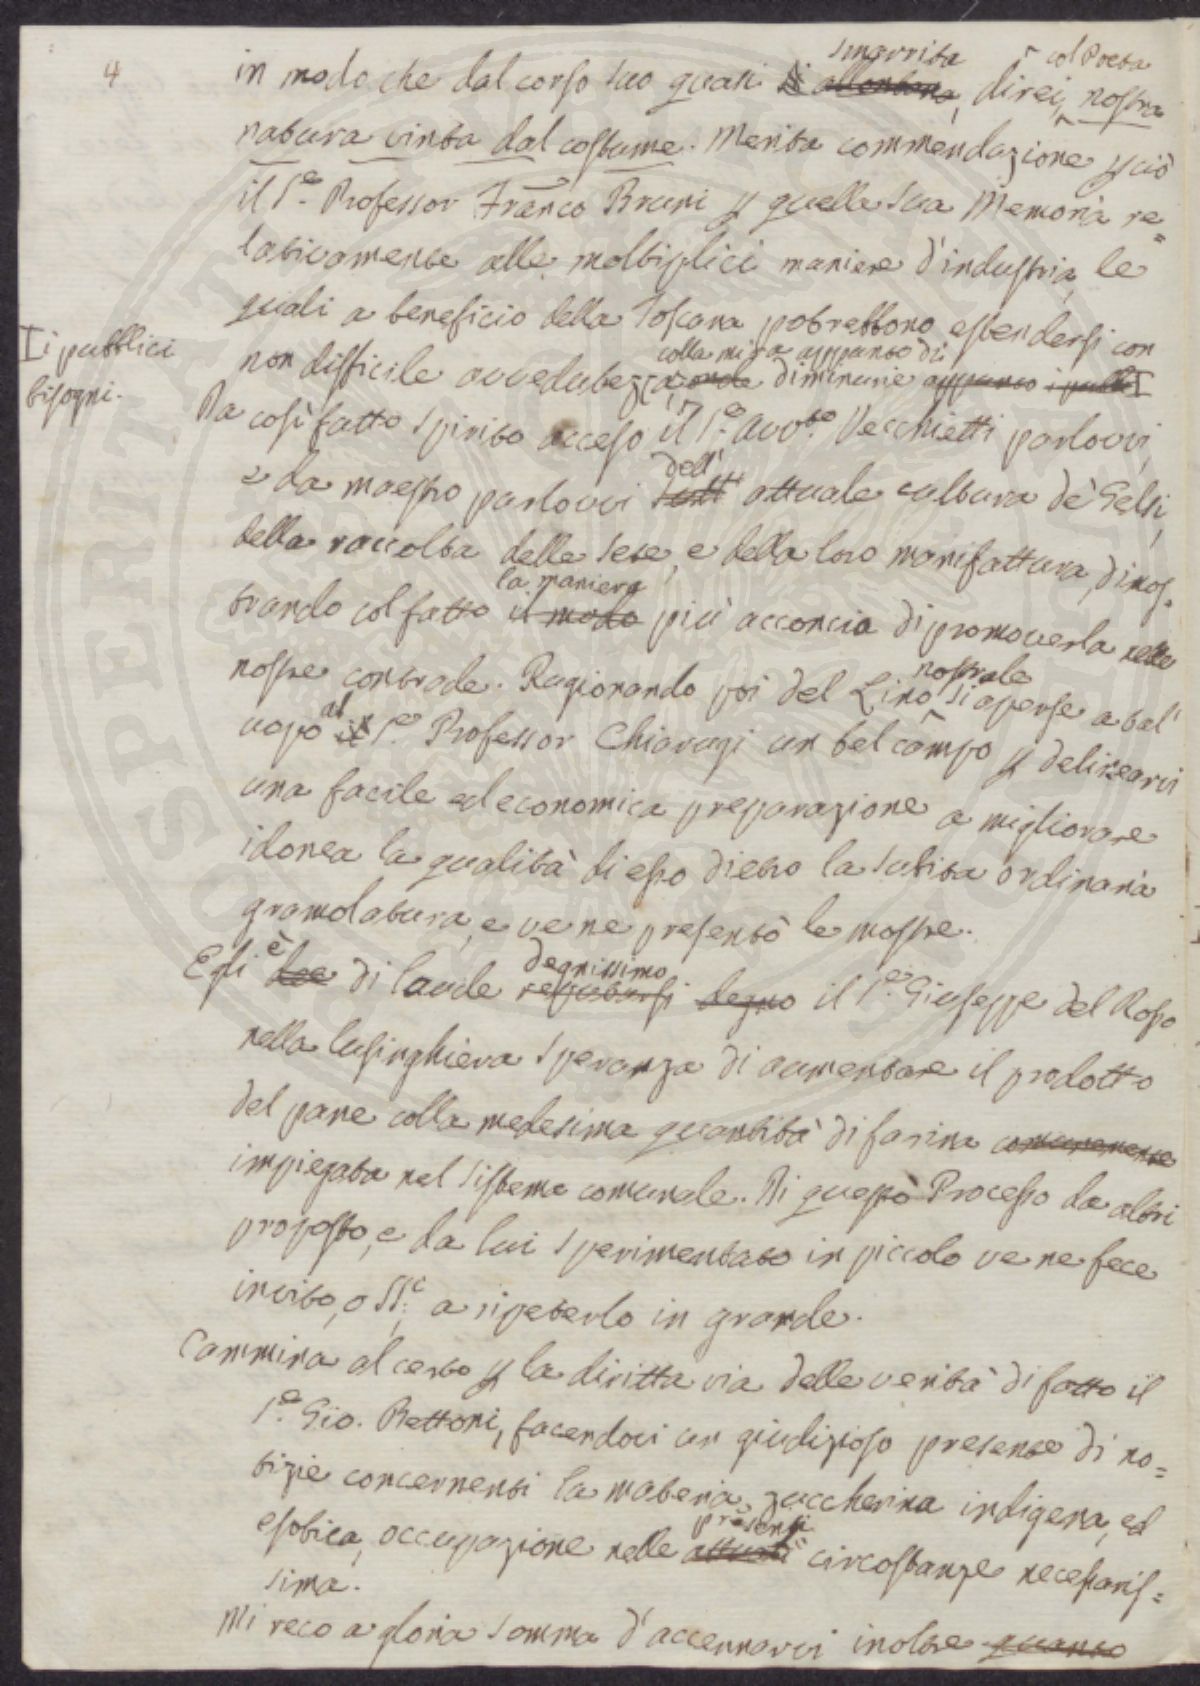 4
smarrita
col Poeta
in modo che dal corso suo quasi si allontana, direi, nostra
natura vinta dal costume. Merita commendazione p ciò
il S.e Professor Franco Bruni p quella sua Memoria re=
lativamente alle moltiplici maniere d'industria, le
quali a beneficio della Toscana potrebbono estendersi con
colla mira appunto di
non difficile avvedutezza, onde diminuire appunto i pubb
[i pubblici
bisogni.
Da così fatto spirito acceso il S.e Avv.to Vecchietti parlovvi,
dell'
e da maestro parlovvi sull' attuale cultura de' Gelsi,
della raccolta delle sete, e della loro manifattura, dimos=
la maniera
trando col fatto il modo più acconcia di promoverla nelle
nostrale
nostre contrade. Ragionando poi del Lino si aperse a tal'
al
uopo il S.e Professor Chiarugi un bel campo p delinearvi
una facile ed economica preparazione a migliorare
idonea la qualità di esso dietro la subita ordinaria
gramolatura, e ve ne presentò le mostre.
è
degnissimo
Egli dee di laude reputarsi degno il S.e Giuseppe del Rosso
nella lusinghiera speranza di aumentare il prodotto
del pane colla medesima quantità di farina comunemente
impiegata nel sistema comunale. Di questo Processo da altri
proposto, e da lui sperimentato in piccolo ve ne fece
invito, o SS.i, a ripeterlo in grande.
Cammina al certo p la diritta via delle verità di fatto il
S.e Gio. Bettoni, facendovi un giudizioso presente di no=
tizie concernenti la materia zuccherina indigena, ed
presenti
esotica, occupazione nelle attuali circostanze necessaris=
sima.
Mi reco a gloria somma d'accennarvi inoltre quanto